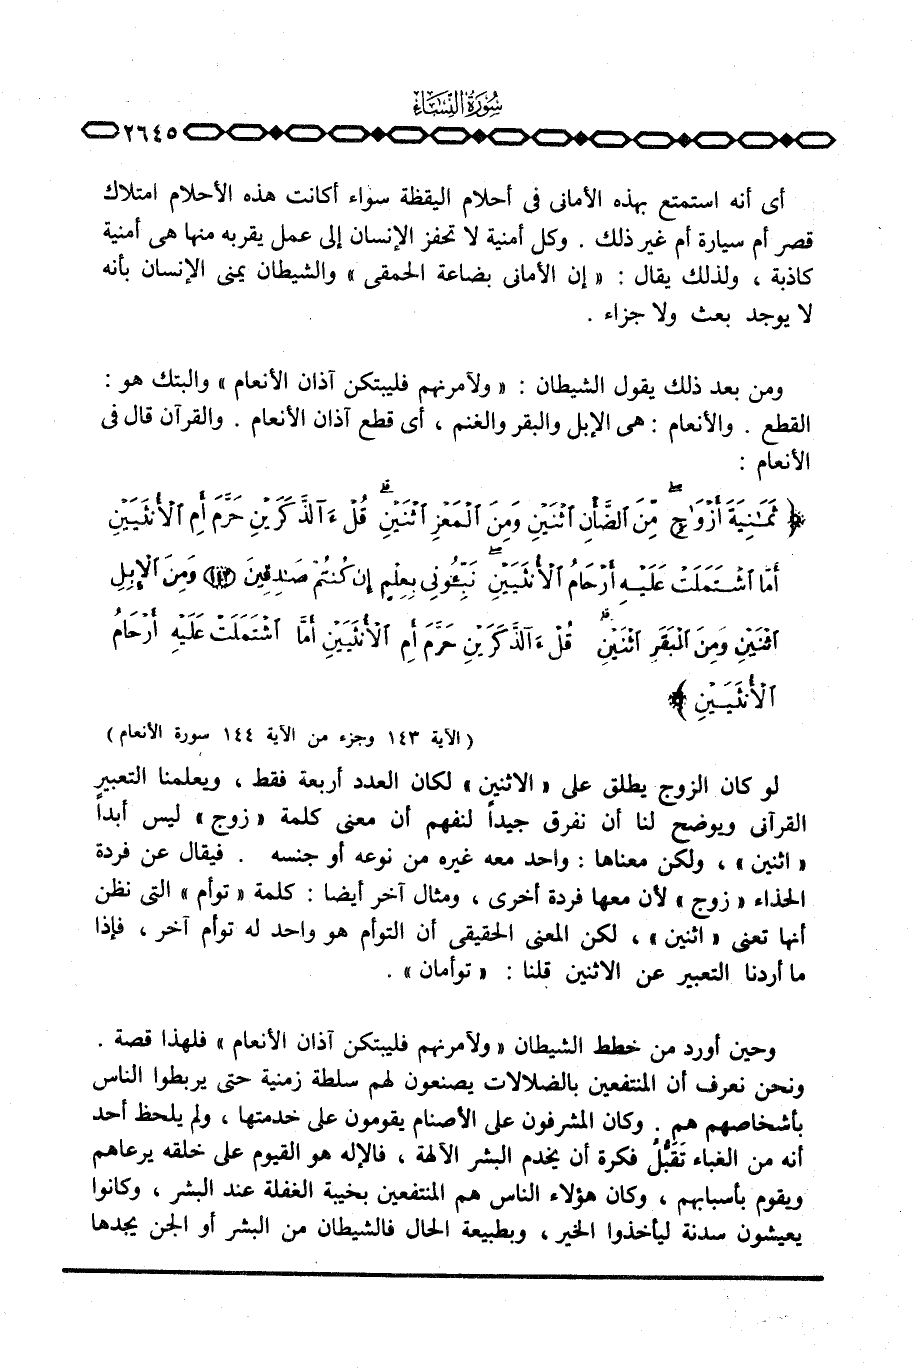 سُورَةُ النِّسَاءِ
٢٦٤٥
أى أنه استمتع بهذه الأمانى فى أحلام اليقظة سواء أكانت هذه الأحلام امتلاك
قصر أم سيارة أم غير ذلك . وكل أمنية لا تحفز الإنسان إلى عمل يقربه منها هى أمنية
كاذبة ، ولذلك يقال : « إن الأمانى بضاعة الحمقى » والشيطان يمنى الإنسان بأنه
لا يوجد بعث ولا جزاء .
ومن بعد ذلك يقول الشيطان : « ولآمرنهم فليبتكن آذان الأنعام » والبتك هو :
القطع . والأنعام : هى الإبل والبقر والغنم ، أى قطع آذان الأنعام . والقرآن قال فى
الأنعام :
﴿ ثَمَـٰنِيَةَ أَزْوَٰجٍ ۖ مِّنَ ٱلضَّأْنِ ٱثْنَيْنِ وَمِنَ ٱلْمَعْزِ ٱثْنَيْنِ ۗ قُلْ ءَآلذَّكَرَيْنِ حَرَّمَ أَمِ ٱلْأُنثَيَيْنِ
أَمَّا ٱشْتَمَلَتْ عَلَيْهِ أَرْحَامُ ٱلْأُنثَيَيْنِ ۖ نَبِّـُٔونِى بِعِلْمٍ إِن كُنتُمْ صَـٰدِقِينَ ﴿١٤٣﴾ وَمِنَ ٱلْإِبِلِ
ٱثْنَيْنِ وَمِنَ ٱلْبَقَرِ ٱثْنَيْنِ ۗ قُلْ ءَآلذَّكَرَيْنِ حَرَّمَ أَمِ ٱلْأُنثَيَيْنِ أَمَّا ٱشْتَمَلَتْ عَلَيْهِ أَرْحَامُ
ٱلْأُنثَيَيْنِ ﴾
( الآية ١٤٣ وجزء من الآية ١٤٤ سورة الأنعام )
لو كان الزوج يطلق على « الاثنين » لكان العدد أربعة فقط ، ويعلمنا التعبير
القرآنى ويوضح لنا أن نفرق جيداً لنفهم أن معنى كلمة « زوج » ليس أبداً
« اثنين » ، ولكن معناها : واحد معه غيره من نوعه أو جنسه . فيقال عن فردة
الحذاء « زوج » لأن معها فردة أخرى ، ومثال آخر أيضا : كلمة « توأم » التى نظن
أنها تعنى « اثنين » ، لكن المعنى الحقيقى أن التوأم هو واحد له توأم آخر ، فإذا
ما أردنا التعبير عن الاثنين قلنا : « توأمان » .
وحين أورد من خطط الشيطان « ولآمرنهم فليبتكن آذان الأنعام » فلهذا قصة .
ونحن نعرف أن المنتفعين بالضلالات يصنعون لهم سلطة زمنية حتى يربطوا الناس
بأشخاصهم هم . وكان المشرفون على الأصنام يقومون على خدمتها ، ولم يلحظ أحد
أنه من الغباء تَقَبُّلُ فكرة أن يخدم البشر الآلهة ، فالإله هو القيوم على خلقه يرعاهم
ويقوم بأسبابهم ، وكان هؤلاء الناس هم المنتفعين بخيبة الغفلة عند البشر ، وكانوا
يعيشون سدنة ليأخذوا الخير ، وبطبيعة الحال فالشيطان من البشر أو الجن يجدها